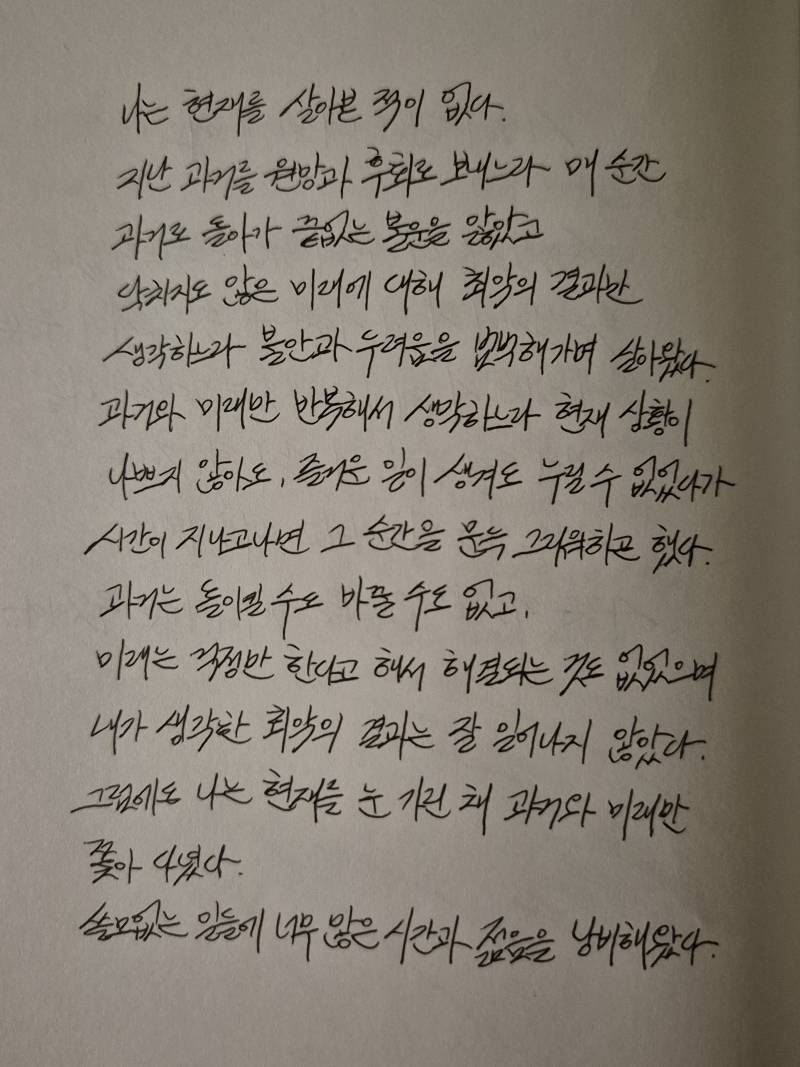 나는 현재를 살아본 적이 없다.
지난 과거를 원망과 후회로 보내느라 매 순간
과거로 돌아가 끝없는 불운을 앓았고
닥치지도 않은 미래에 대해 최악의 결과만
생각하느라 불안과 두려움을 반복해가며 살아왔다.
과거와 미래만 반복해서 생각하느라 현재 상황이
나쁘지 않아도, 즐거운 일이 생겨도 누릴 수 없었다가
시간이 지나고나면 그 순간을 문득 그리워하곤 했다.
과거는 돌이킬 수도 바꿀 수도 없고,
미래는 걱정만 한다고 해서 해결되는 것도 없었으며
내가 생각한 최악의 결과는 잘 일어나지 않았다.
그럼에도 나는 현재를 눈 가린 채 과거와 미래만
쫓아 다녔다.
쓸모없는 일들에 너무 많은 시간과 젊음을 낭비해왔다.